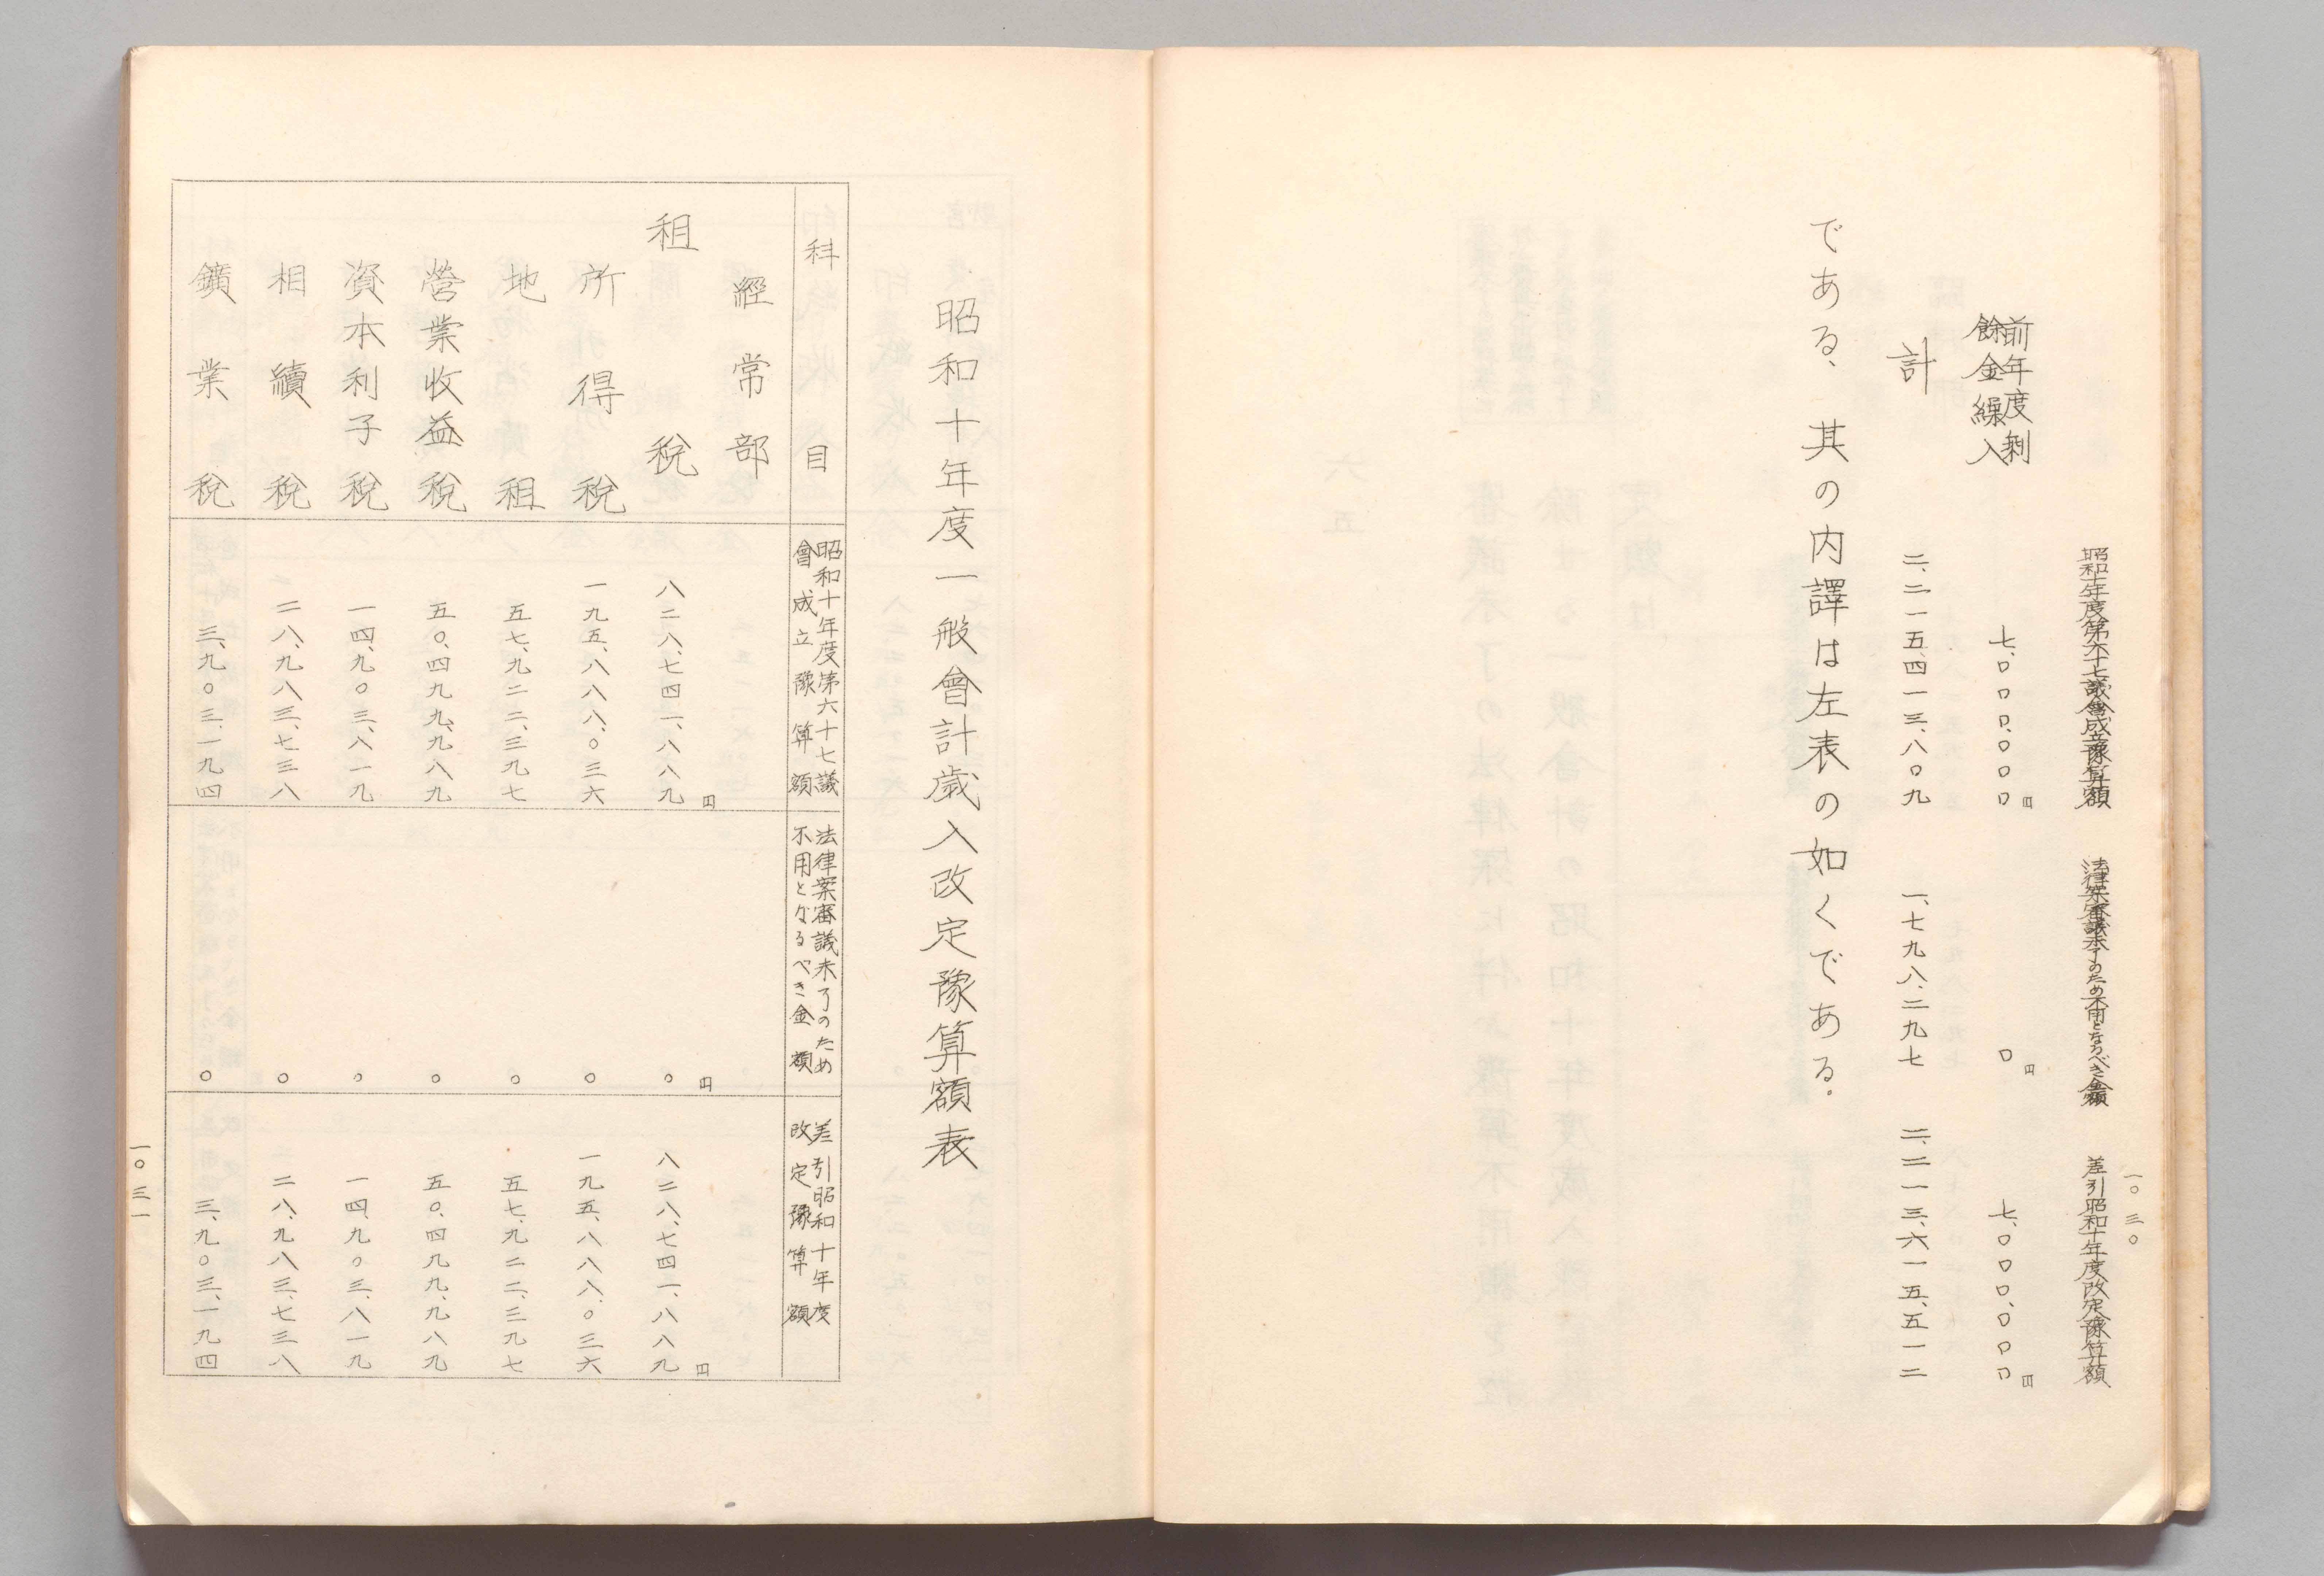 一〇三〇
昭和十年度第六十七議會成立豫算額　法律案審議未了のため不用となるべき金額　差引昭和十年度改定豫算額
円　円　円
前年度剰
餘金繰入　七、〇〇〇、〇〇〇　〇　七、〇〇〇、〇〇〇
計　二、二一五、四一三、八〇九　一、七九八、二九七　二、二一三、六一五、五一二
である、其の内譯は左表の如くである。
昭和十年度一般會計歲入改定豫算額表
科目　昭和十年度第六十七議會成立豫算額　法律案審議未了のため不用となるべき金額　差引昭和十年度改定豫算額
經常部
円　円　円
租稅　八二八、七四一、八八九　〇　八二八、七四一、八八九
所得稅　一九五、八八八、〇三六　〇　一九五、八八八、〇三六
地租　五七、九二二、三九七　〇　五七、九二二、三九七
營業收益稅　五〇、四九九、九八九　〇　五〇、四九九、九八九
資本利子稅　一四、九〇三、八一九　〇　一四、九〇三、八一九
相續稅　二八、九八三、七三八　〇　二八、九八三、七三八
鑛業稅　三、九〇三、一九四　〇　三、九〇三、一九四
一〇三一